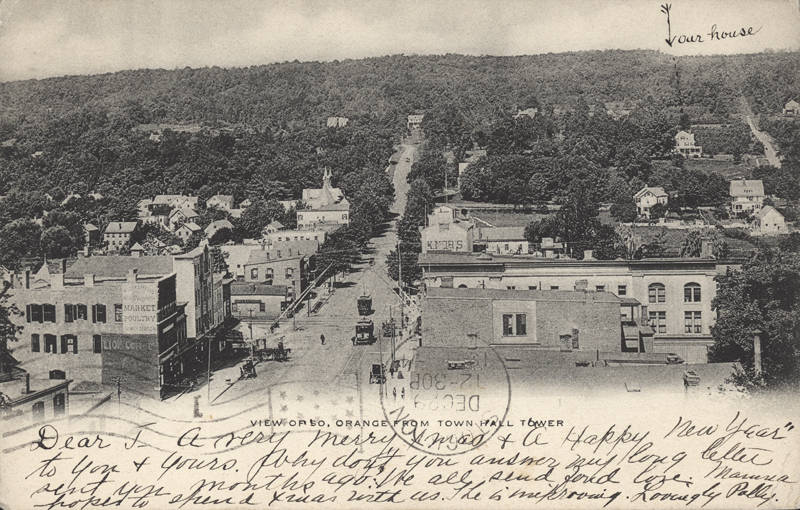 our house
KNOBS
MARKET
POULTRY
DEC 29
12-30P
VIEW OF SO. ORANGE FROM TOWN HALL TOWER
Dear J. A very Merry Xmas & "A Happy New Year"
to you & yours. Why don't you answer my long letter
sent you months ago. We all send fond love. Mamma
hopes to spend Xmas with us. She is improving. Lovingly Polly.